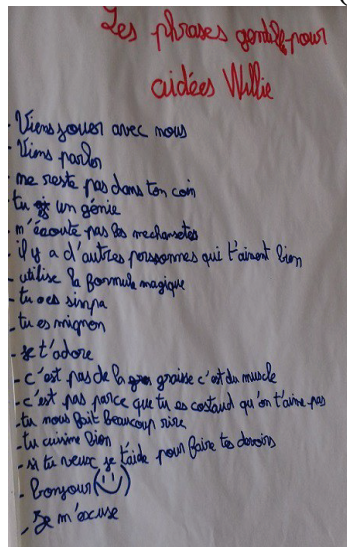 Les phrases gentilles pour
aidées Willie
- Viens jouer avec nous
- Viens parler
- ne reste pas dans ton coin
tu es un génie
- m'écoute pas les mechansetes
- il y a d'autres perssonnes qui t'aiment bien
- utilise la formule magique
- tu es simpa
- tu es mignon
- je t'adore
- c'est pas de la graisse c'est du muscle
- c'est pas parce que tu es costaud qu'on t'aime pas
- tu nous fait beaucoup rire
- tu cuisine bien
- si tu veux je t'aide pour faire tes devoirs
- bonjour (☺)
- Je m'excuse